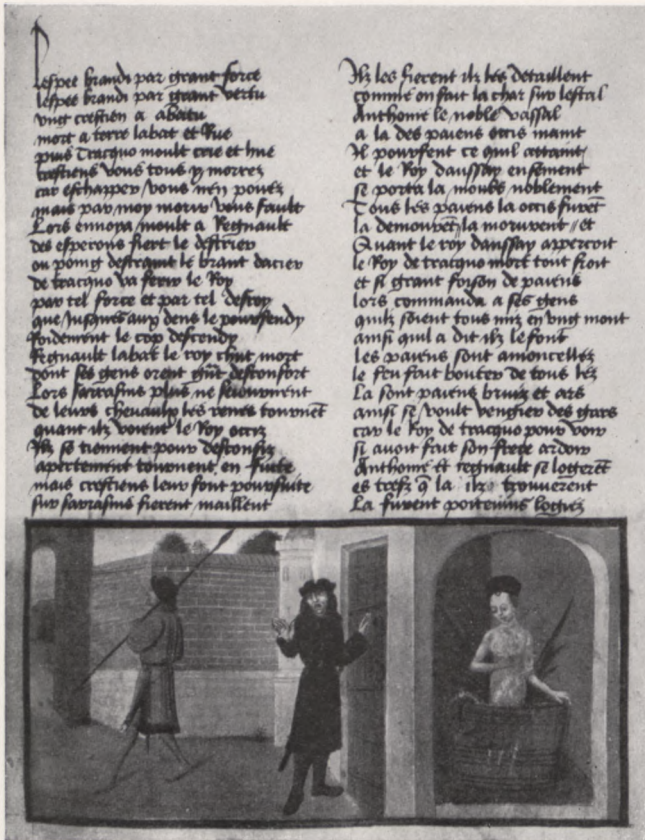 Lespee brandi par grant force
lespee brandi par grant vertu
vng crestien a abatu
mort a terre labat et Rue
puis Tracquo moult crie et hue
crestiens vous tous y morrez
car eschapper vous nen pouez
mais par moy morir vous fault
Lors ennoya moult a Regnault
des esperons fiert le destrier
ou poing destraint le brant dacier
de tracquo va ferir le Roy
par tel force et par tel desroy
que Jusques aux dens le pourfendy
Roidement le cop descendy
Regnault labat le roy chut mort
dont ses gens orent gnt desconfort
Lors sarrasins plus ne seiournent
de leurs cheuaulx les renes tournet
quant ilz voient le Roy occiz
Ilz se tiennent pour desconfiz
apertement tournent en fuite
mais crestiens leur font poursuite
sur sarrasins fierent maillent
Ilz les fierent ilz les detaillent
comme on fait la char sur lestal
Anthoine le noble vassal
a la des paiens occis maint
Il pourfent ce quil attaint
et le Roy daussay ensement
se porta la moult noblement
Tous les paiens la occis furet
la demouret la morurent et
Quant le roy daussay appercoit
le Roy de tracquo mort tout froit
et si grant foison de paiens
lors commanda a ses gens
quilz soient tous mis en vng mont
ainsi quil a dit ilz le font
les paiens sont amoncellez
le feu fait bouter de tous lez
La sont paiens bruiz et ars
ainsi se voult vengier des gars
car le Roy de tracquo pour voir
si auoit fait son frere ardoir
Anthoine et regnault se logeret
es trefz q la ilz trouuerent
La furent poiteuins logiez